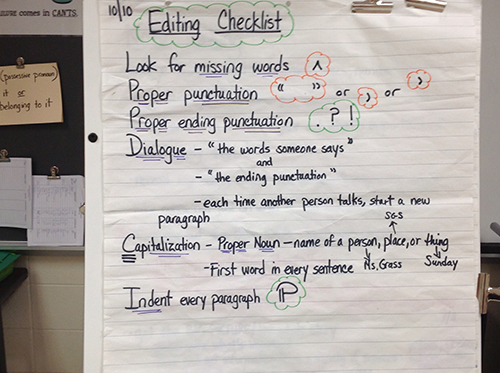 10/10 Editing Checklist
comes in CANTS.
(possessive pronoun)
it or
belonging to it
Look for missing words ^
Proper punctuation " " or , or ,
Proper ending punctuation . ? !
Dialogue - "the words someone says"
and
- "the ending punctuation"
- each time another person talks, start a new
paragraph
SGS
Capitalization - Proper Noun - name of a person, place, or thing
- First word in every sentence Ms. Grass Sunday
Indent every paragraph